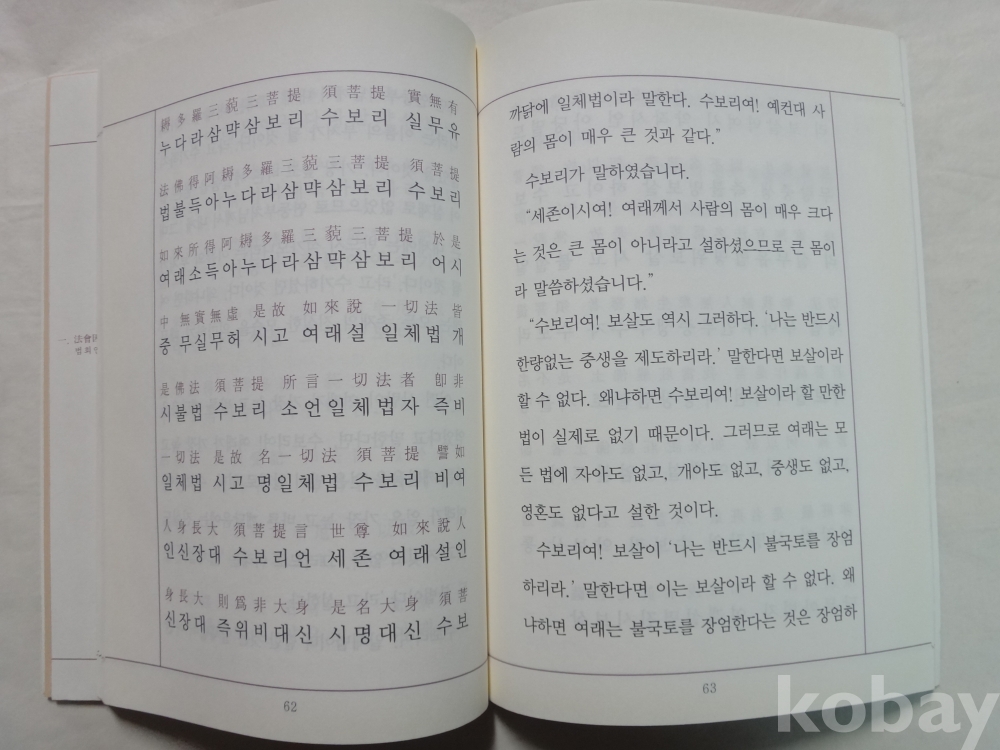 耨多羅三藐三菩提 須菩提 實無有
누다라삼먁삼보리 수보리 실무유
法佛得阿耨多羅三藐三菩提 須菩提
법불득아누다라삼먁삼보리 수보리
如來所得阿耨多羅三藐三菩提 於是
여래소득아누다라삼먁삼보리 어시
中 無實無虛 是故 如來說 一切法 皆
중 무실무허 시고 여래설 일체법 개
是佛法 須菩提 所言一切法者 卽非
시불법 수보리 소언일체법자 즉비
一切法 是故 名一切法 須菩提 譬如
일체법 시고 명일체법 수보리 비여
人身長大 須菩提言 世尊 如來說人
인신장대 수보리언 세존 여래설인
身長大 則爲非大身 是名大身 須菩
신장대 즉위비대신 시명대신 수보
62
까닭에 일체법이라 말한다. 수보리여! 예컨대 사
람의 몸이 매우 큰 것과 같다.”
수보리가 말하였습니다.
“세존이시여! 여래께서 사람의 몸이 매우 크다
는 것은 큰 몸이 아니라고 설하셨으므로 큰 몸이
라 말씀하셨습니다.”
“수보리여! 보살도 역시 그러하다. ‘나는 반드시
한량없는 중생을 제도하리라.’ 말한다면 보살이라
할 수 없다. 왜냐하면 수보리여! 보살이라 할 만한
법이 실제로 없기 때문이다. 그러므로 여래는 모
든 법에 자아도 없고, 개아도 없고, 중생도 없고,
영혼도 없다고 설한 것이다.
수보리여! 보살이 ‘나는 반드시 불국토를 장엄
하리라.’ 말한다면 이는 보살이라 할 수 없다. 왜
냐하면 여래는 불국토를 장엄한다는 것은 장엄하
63
kobay